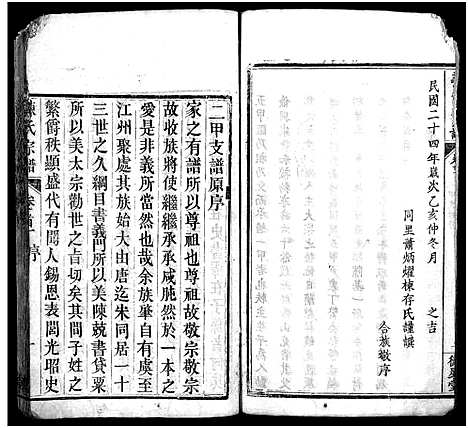 民國二十四年歲次乙亥仲冬月
之吉
同里蕭炳燿棟存氏謹撰
合族敬序
二甲支譜原序
家之有譜所以尊祖也尊祖故敬宗敬宗
故收族將使繼繼承承咸肫然於一本之
愛是非義所當然耶余族肇自有虞至
江州聚處其族始大由唐迄宋同居一十
三世之久綱目書義門所以美陳兢書貸粟
所以美太宗勸世之士族也其間子姓之
繁爵秩顯盛代有聞人錫恩表閭光昭史
陳氏宗譜
卷首
序
一